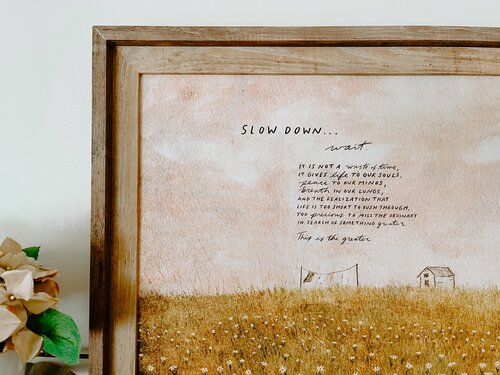 SLOW DOWN...
wait.
IT IS NOT A waste of time,
IT GIVES life TO OUR SOULS,
peace TO OUR MINDS,
breath IN OUR LUNGS,
AND THE REALIZATION THAT
LIFE IS TOO SHORT TO RUSH THROUGH.
TOO precious TO MISS THE ORDINARY
IN SEARCH OF SOMETHING greater.
This is the greater.